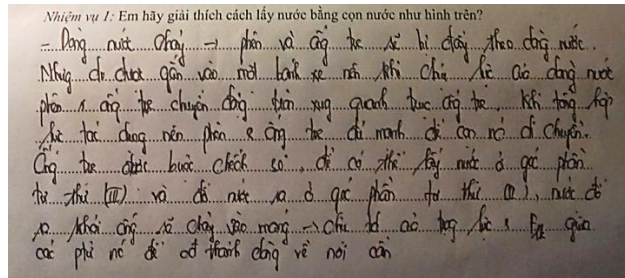 Nhiệm vụ 1: Em hãy giải thích cách lấy nước bằng cọn nước như hình trên?
- Dòng nước chảy → phên và ống tre sẽ bị đẩy theo dòng nước.
Nhưng do được gắn vào một bánh xe nên khi chịu lực của dòng nước
phên & ống tre chuyển động tròn xung quanh trục ống tre. Khi tổng hợp
lực tác dụng nên phên & ống tre đủ mạnh để con nó di chuyển.
Ống tre được buộc chếch so, để có thể lấy nước ở góc phần
tư thứ (III) và đổ nước ra ở góc phần tư thứ (II), nước đổ
ra khỏi ống sẽ chảy vào máng →
các để về nơi cần